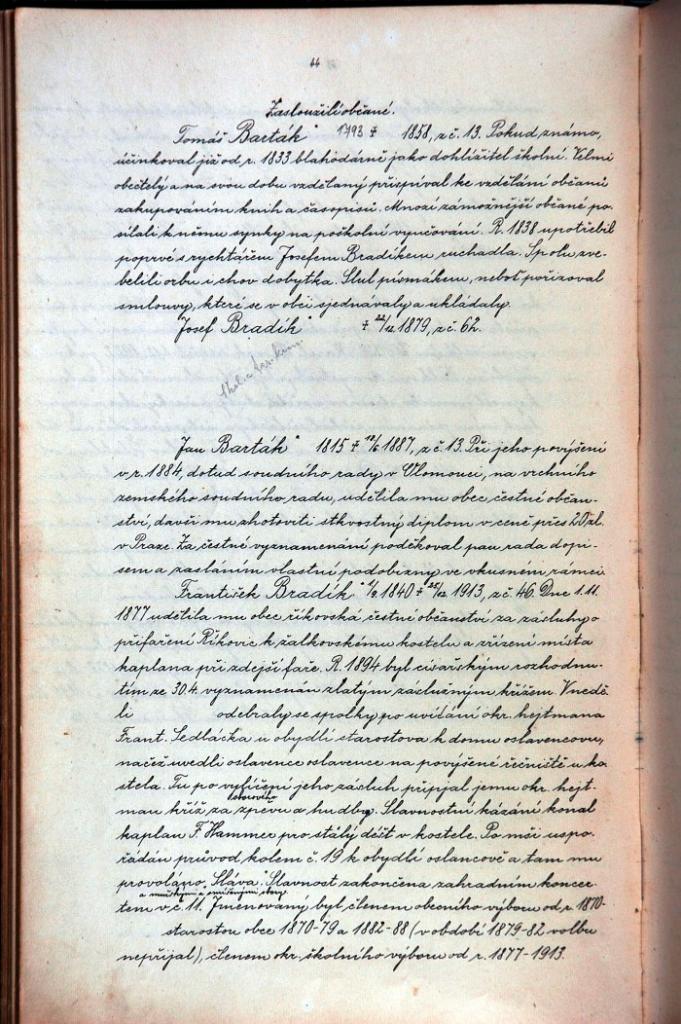 44
Zasloužilí občané.
Tomáš Barták * 1793 ‡ 1858, z č. 13. Pokud známo,
účinkoval již od r. 1833 blahodárně jako dohlížitel školní. Velmi
obečtelý a na svou dobu vzdělaný přispíval ke vzdělání občanů
zakupováním knih a časopisů. Mnozí zámožnější občané po-
sílali k němu synky na poškolní vyučování. R. 1838 upotřebil
poprvé s rychtářem Josefem Bradíkem ruchadla. Spolu zve-
lebili orbu i chov dobytka. Slul písmákem, neboť pořizoval
smlouvy, které se v obci sjednávaly a ukládaly.
Josef Bradík * ‡ 22/12 1879, z č. 62.
Jan Barták * 1815 ‡ 12/6 1887, z č. 13. Při jeho povýšení
v r. 1884, dotud soudního rady v Olomouci, na vrchního
zemského soudního radu, udělila mu obec čestné občan-
ství, davši mu zhotoviti skvostný diplom v ceně přes 20 zl.
v Praze. Za čestné vyznamenání poděkoval pan rada dopi-
sem a zasláním vlastní podobizny ve vkusném rámci.
František Bradík * 1840 ‡ 25/12 1913, z č. 46. Dne 1.11.
1877 udělila mu obec říkovská čestné občanství za zásluhy o
přifaření Říkovic k žalkovskému kostelu a zřízení místa
kaplana při zdejší faře. R. 1894 byl císařským rozhodnu-
tím ze 30.4. vyznamenán zlatým záslužným křížem. V nedě-
li odebraly se spolky po uvítání okr. hejtmana
Frant. Sedláčka u obydlí starostova k domu oslavencovu,
načež uvedli oslavence oslavence na povýšené řečniště u ko-
stela. Tu po vylíčení jeho zásluh připjal jemu okr. hejt-
man kříž za sborového zpěvu a hudby. Slavnostní kázání konal
kaplan F. Hammer pro stálý déšť v kostele. Po mši uspo-
řádán průvod kolem č. 19 k obydlí oslancově a tam mu
provoláno „Sláva“. Slavnost zakončena zahradním koncer-
tem a mužskými a smíšenými sbory v č. 11. Jmenovaný byl členem obecního výboru od r. 1870-
starostou obce 1870-79 a 1882-88 (v období 1879-82 volbu
nepřijal), členem okr. školního výboru od r. 1877-1913.